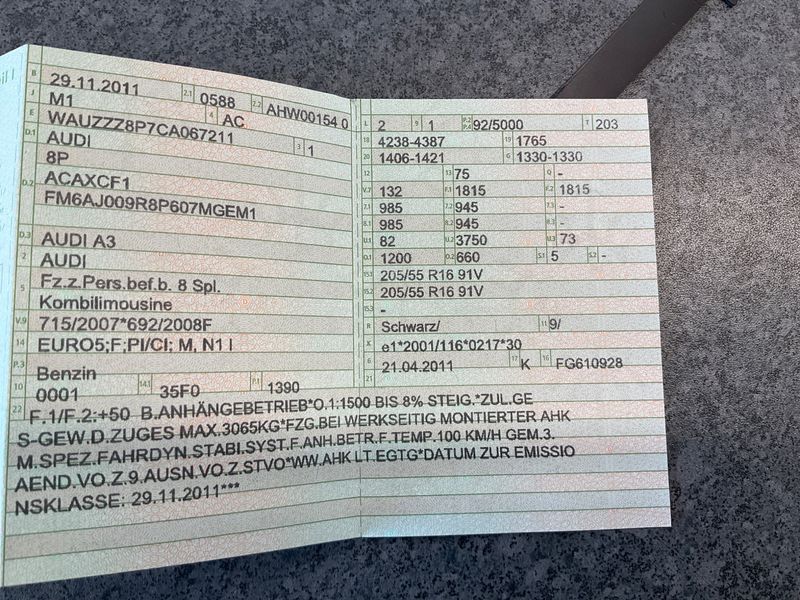 B 29.11.2011 2.1 0588 2.2 AHW00154 0
J M1 4 AC
E WAUZZZ8P7CA067211 3 1
D.1 AUDI
8P
D.2 ACAXCF1
FM6AJ009R8P607MGEM1
D.3 AUDI A3
2 AUDI
5 Fz.z.Pers.bef.b. 8 Spl.
Kombilimousine
V.9 715/2007*692/2008F
14 EURO5;F;PI/CI; M, N1 I
P.3 Benzin
10 0001 14.1 35F0 P.1 1390
L 2 9 1 P.2 P.4 92/5000 T 203
18 4238-4387 19 1765
20 1406-1421 G 1330-1330
12 13 75 Q -
V.7 132 F.1 1815 F.2 1815
7.1 985 7.2 945 7.3 -
8.1 985 8.2 945 8.3 -
U.1 82 U.2 3750 U.3 73
O.1 1200 O.2 660 S.1 5 S.2 -
15.1 205/55 R16 91V
15.2 205/55 R16 91V
15.3 -
R Schwarz/ 11 9/
K e1*2001/116*0217*30
6 21.04.2011 17 K 16 FG610928
21
22 F.1/F.2:+50 B.ANHÄNGEBETRIEB*O.1:1500 BIS 8% STEIG.*ZUL.GE
S-GEW.D.ZUGES MAX.3065KG*FZG.BEI WERKSEITIG MONTIERTER AHK
M.SPEZ.FAHRDYN.STABI.SYST.F.ANH.BETR.F.TEMP.100 KM/H GEM.3.
AEND.VO.Z.9.AUSN.VO.Z.STVO*WW.AHK LT.EGTG*DATUM ZUR EMISSIO
NSKLASSE: 29.11.2011***